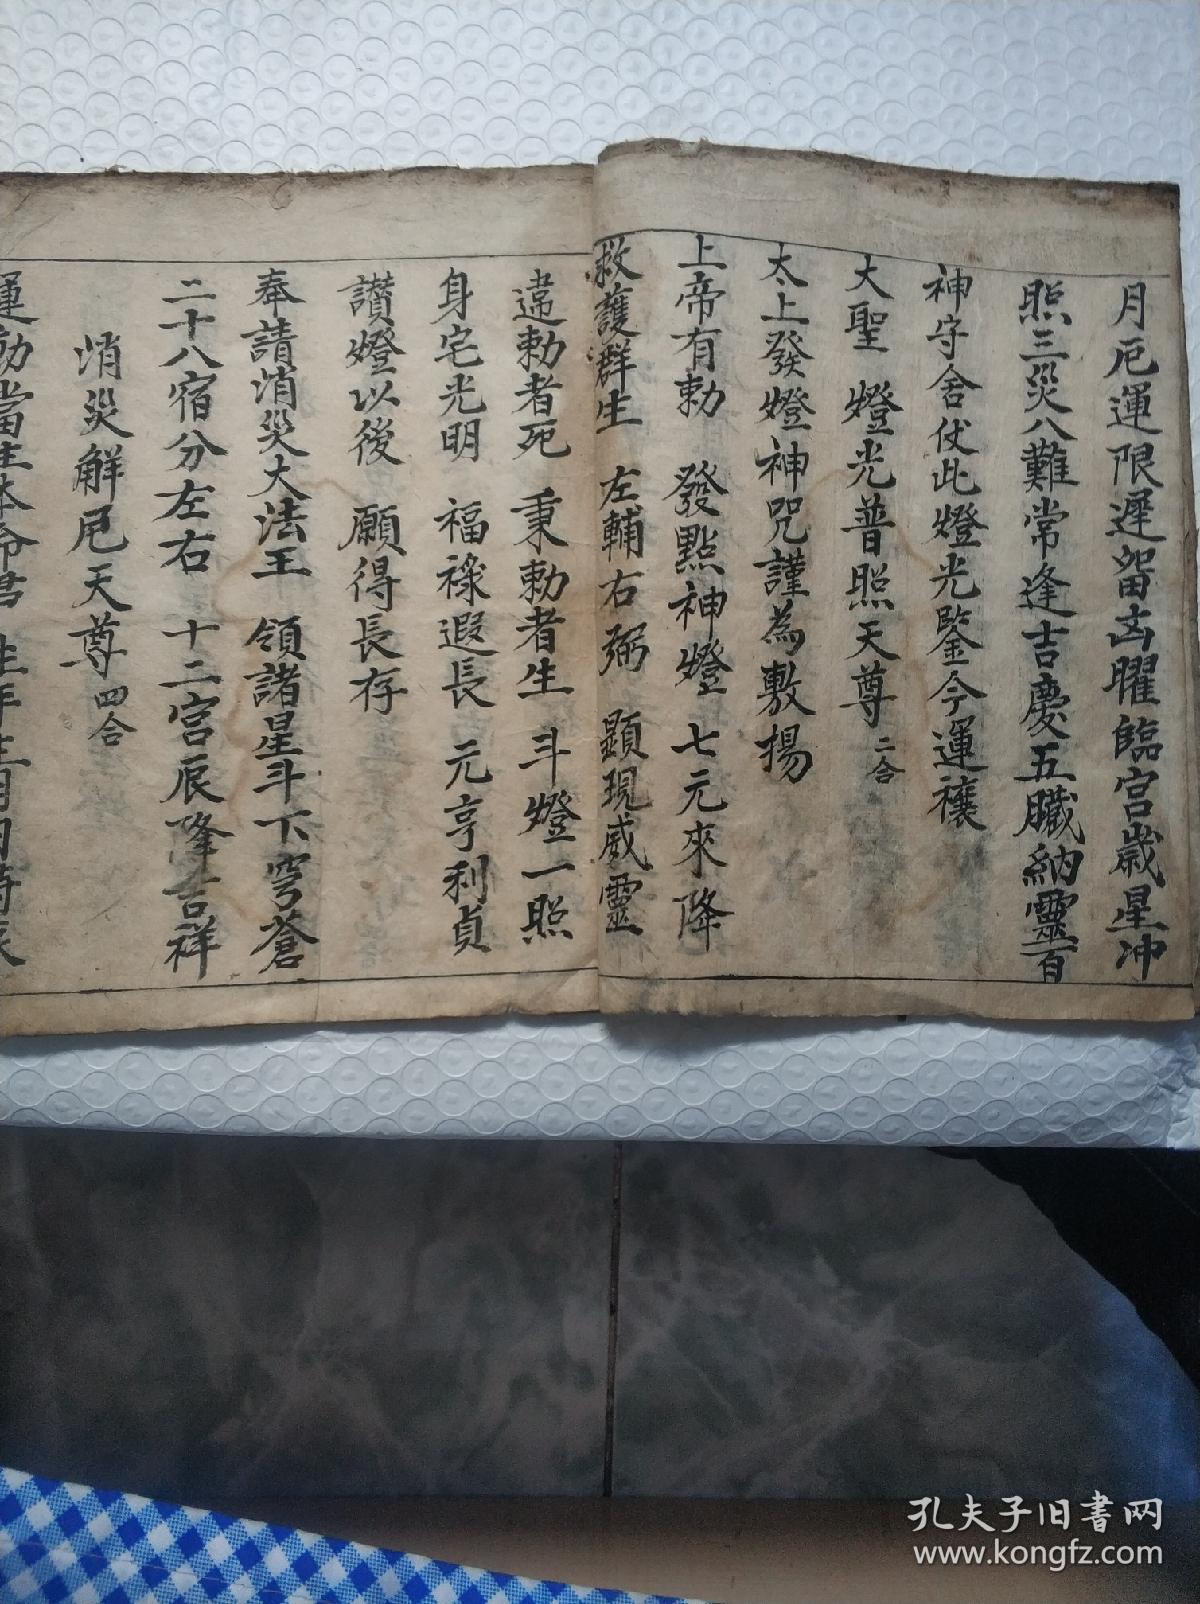 月厄運限遲留凶曜臨宮歲星冲
照三災八難常逢吉慶五臟納靈百
神守舍伏此燈光鑒今運禳
大聖 燈光普照天尊 二合
太上發燈神咒謹為敷揚
上帝有勅 發點神燈 七元來降
救護群生 左輔右弼 顯現威靈
違勅者死 秉勅者生 斗燈一照
身宅光明 福祿遐長 元亨利貞
讚燈以後 願得長存
奉請消災大法王 領諸星斗下穹蒼
二十八宿分左右 十二宮辰降吉祥
消災解厄天尊 四合
孔夫子旧書网
www.kongfz.com